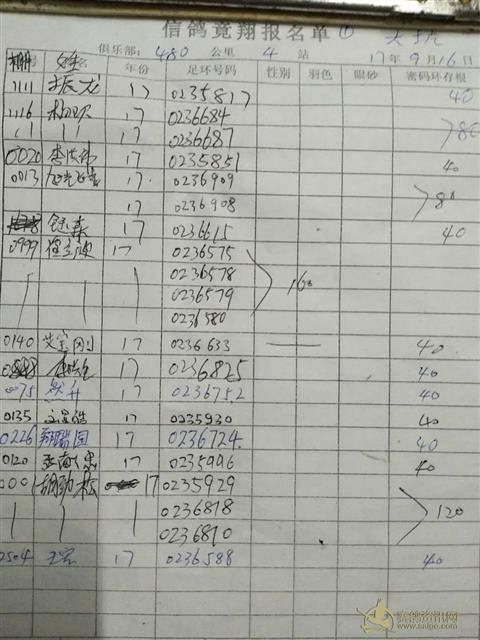 信鸽竟翔报名单 ①
俱乐部: 480 公里 4 站 17 年 9 月 16 日
棚号 姓名 年份 足环号码 性别 羽色 眼砂 密码环存根
1111 振龙 17 0235817 40
1116 17 0236684 80
17 0236687
0020 17 0235851 40
0013 17 0236909 80
17 0236908
17 0236615 40
0999 17 0236575 160
0236578
0236579
0236580
0140 艾宝刚 17 0236633 40
17 0236825 40
0075 17 0236752 40
0135 17 0235930 40
0226 翔瑞园 17 0236724 40
0120 17 0235996 40
0001 胡劲松 17 0235929 120
0236818
0236810
2504 17 0236588 40
赛鸽资讯网
www.saige.com